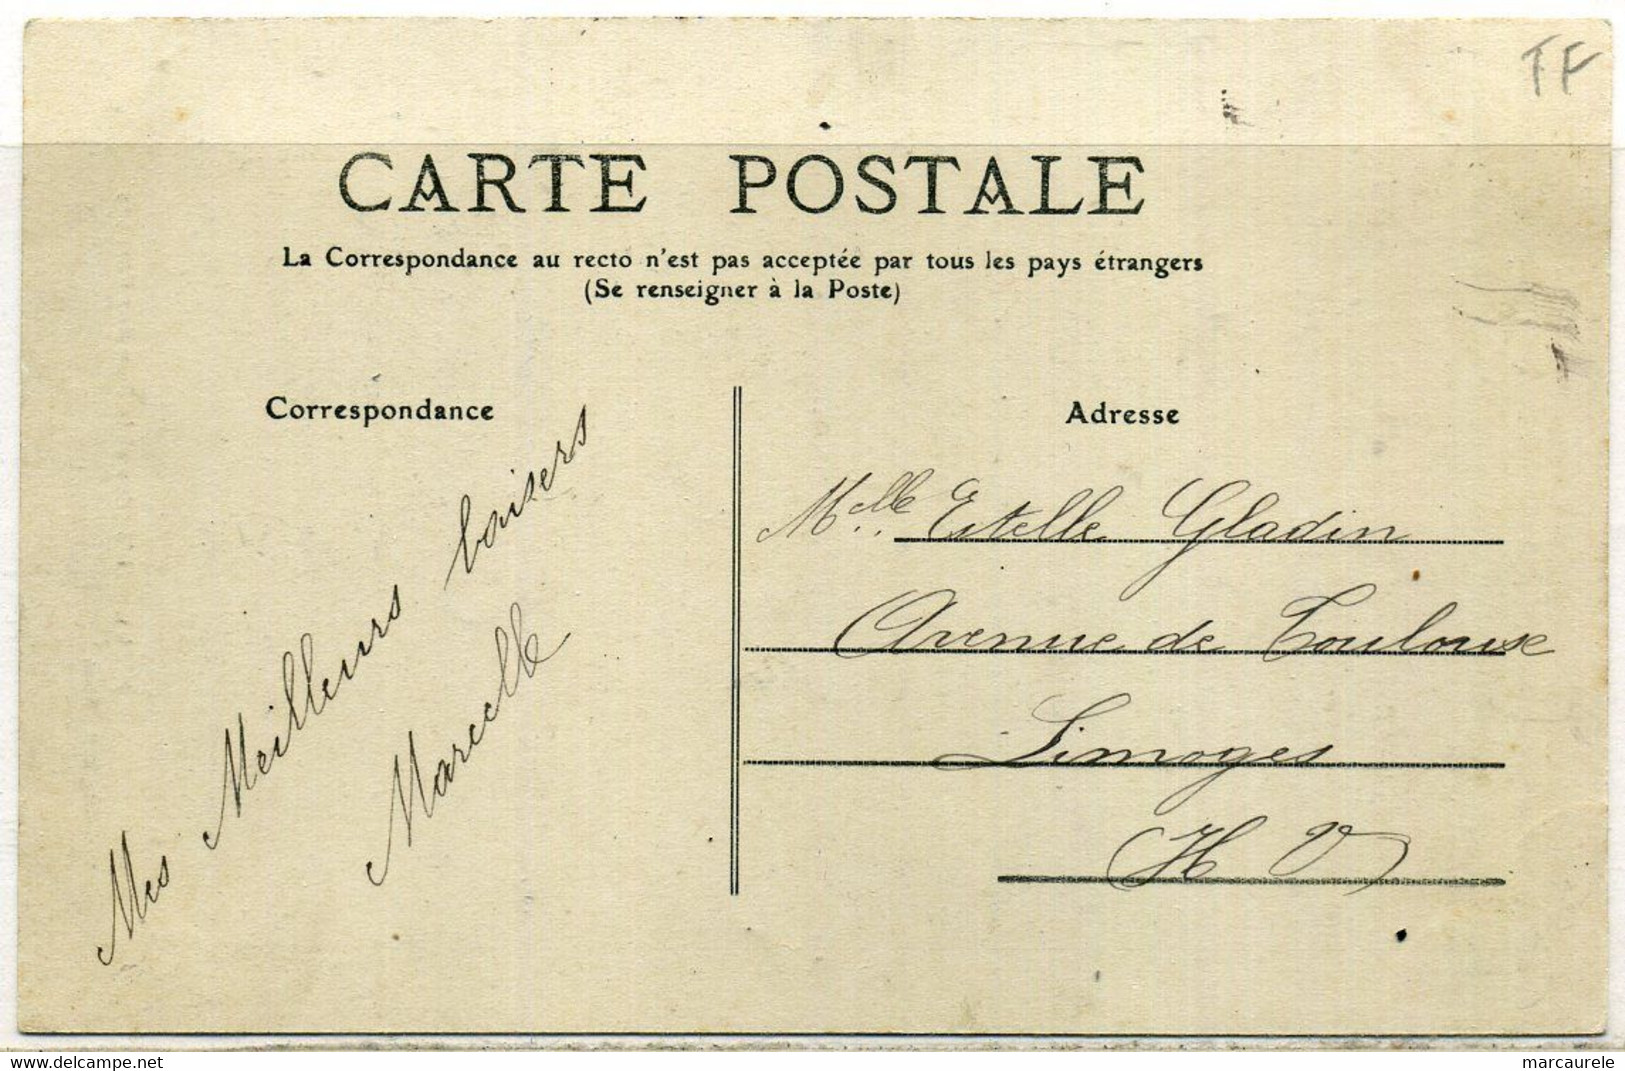 TF
CARTE POSTALE
La Correspondance au recto n'est pas acceptée par tous les pays étrangers
(Se renseigner à la Poste)
Correspondance
Mes Meilleurs baisers
Marcelle
Adresse
Melle Estelle Gladin
Avenue de Toulouse
Limoges
H V
https://www.delcampe.net
marcaurele